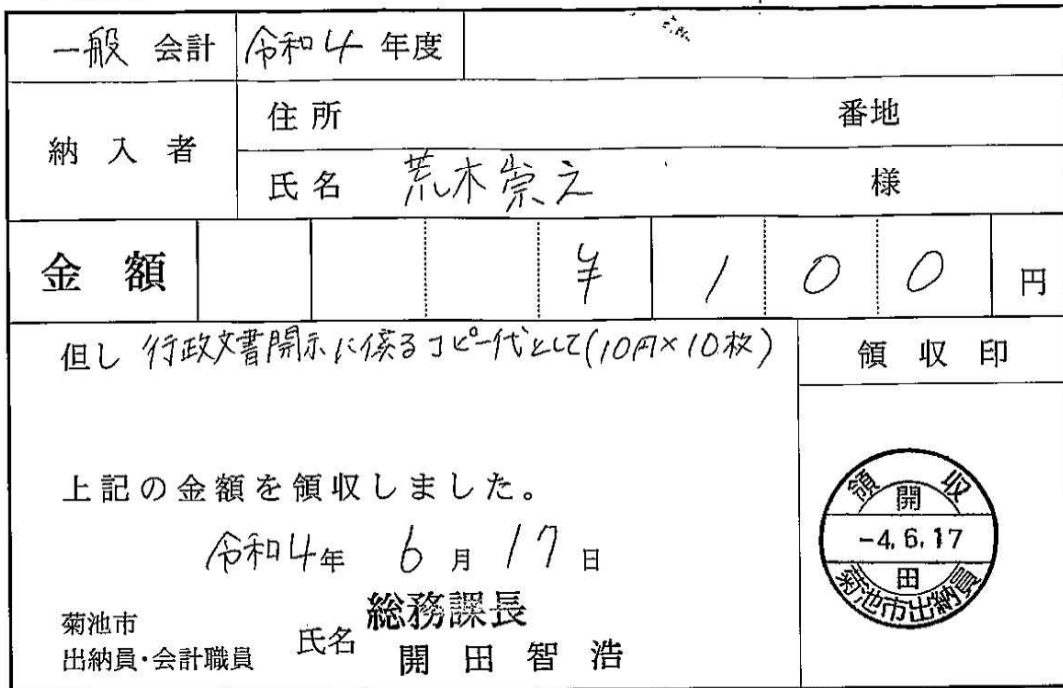 一般 会計 令和4 年度
納入者 住所 番地
氏名 荒木崇之 様
金額 ¥100 円
但し 行政文書開示に係るコピー代として(10円×10枚)
領収印
上記の金額を領収しました。
令和4年 6月17日
菊池市
出納員・会計職員 氏名 総務課長
開田智浩
領収
開
-4.6.17
田
菊池市出納員